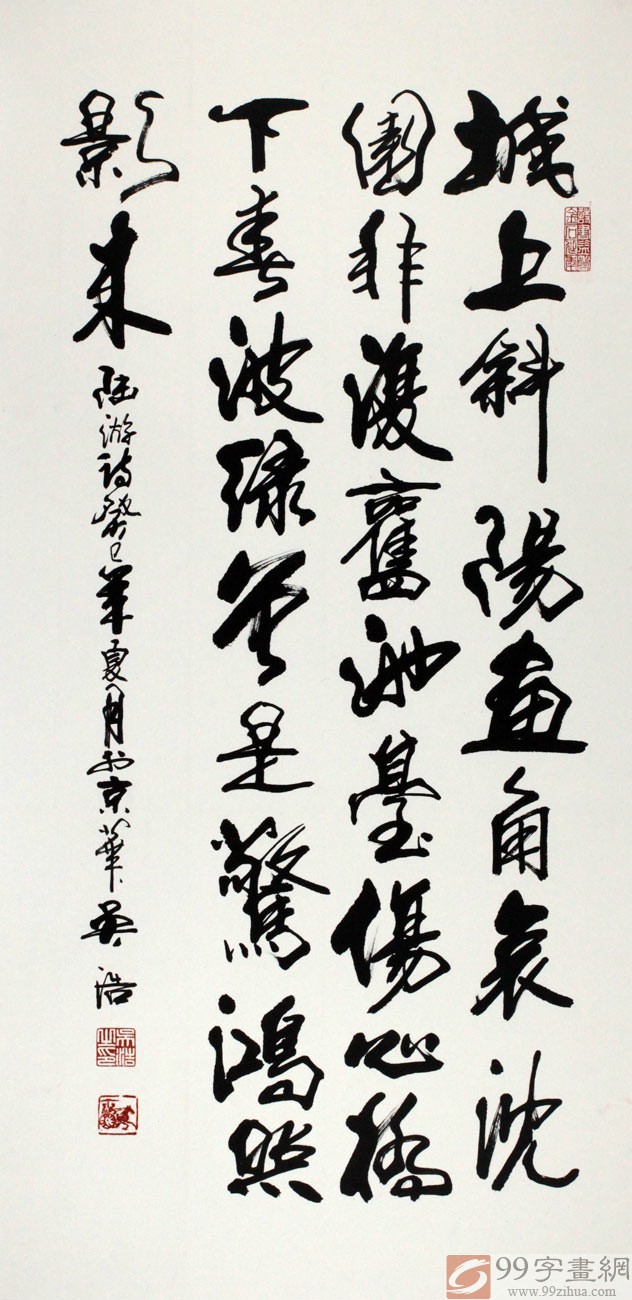 城上斜陽畫角哀沈
園非復舊池臺傷心橋
下春波綠曾是驚鴻照
影來
陸游詩癸巳年夏月於京華吳浩
吳浩之印
99字畫網
www.99zihua.com